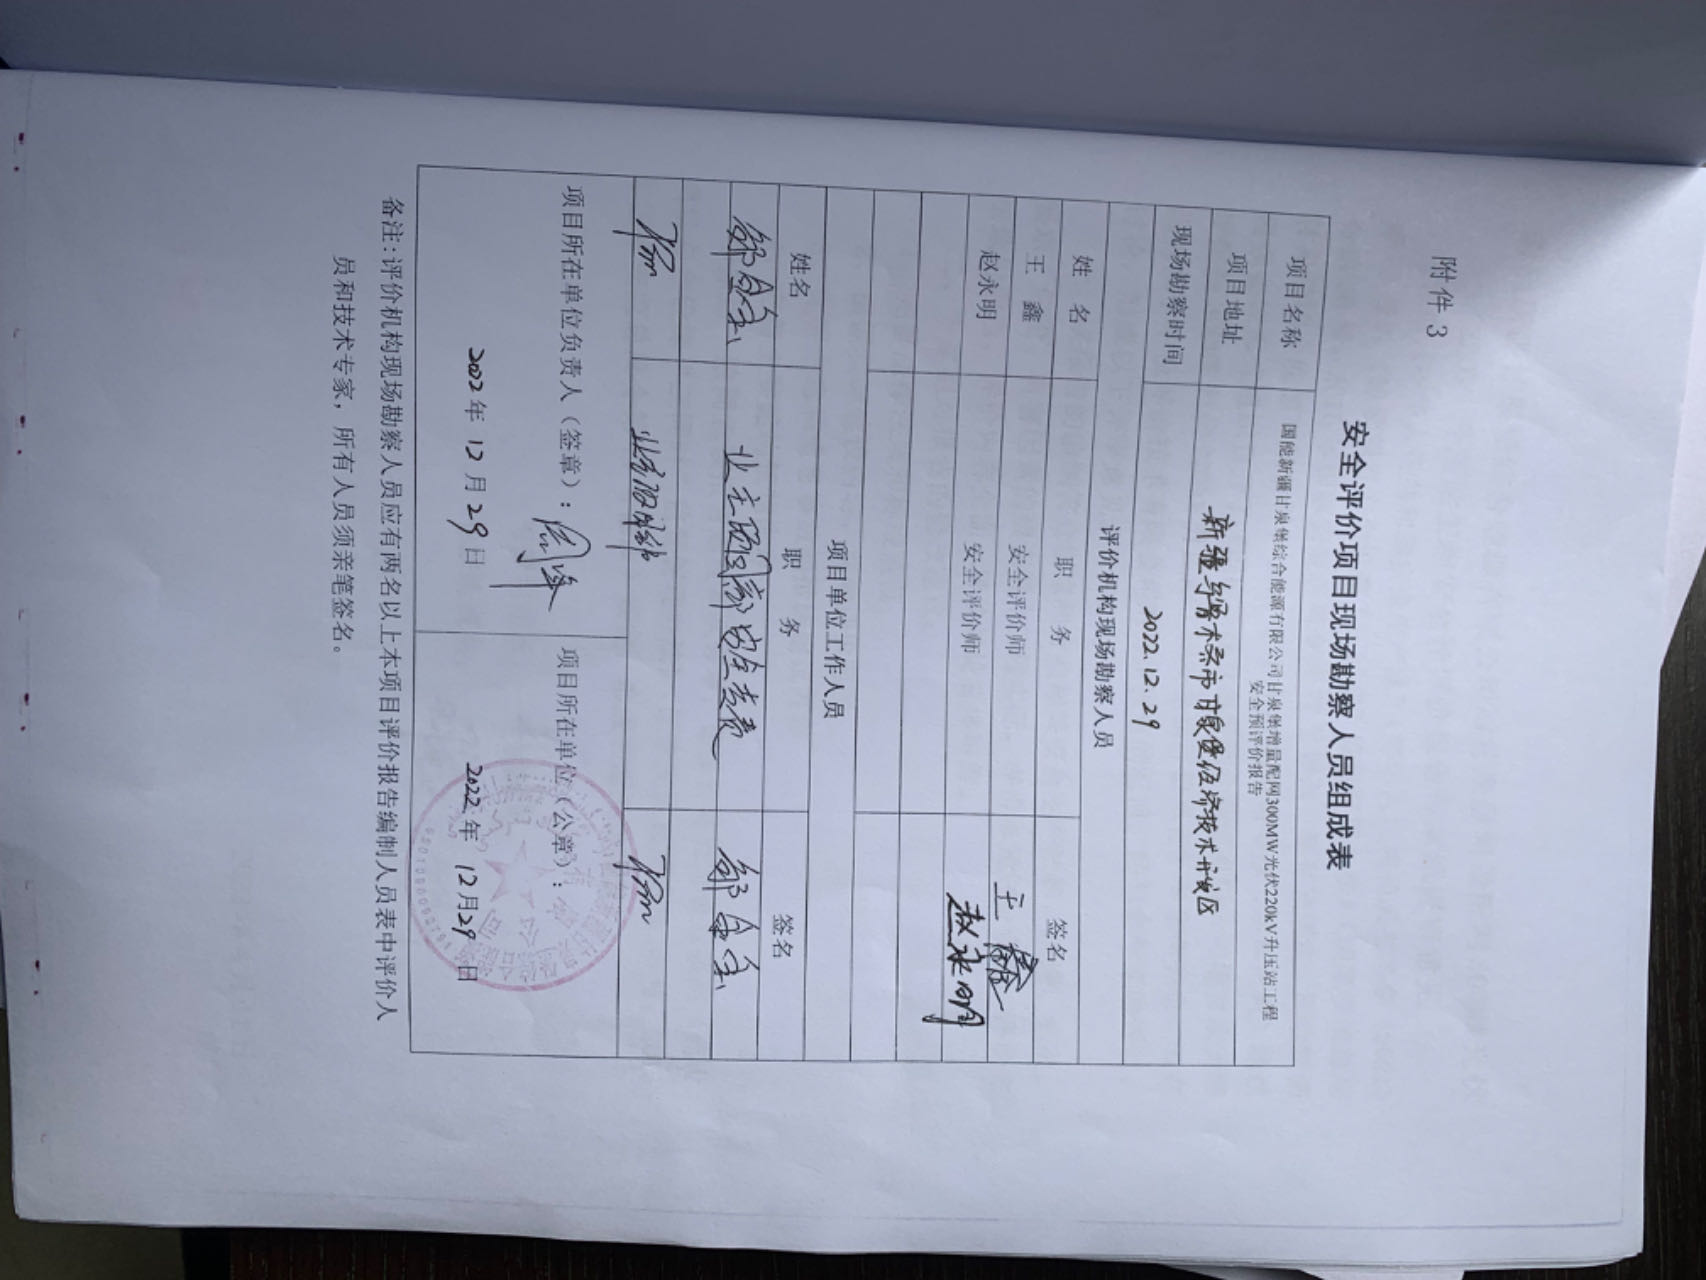 附件 3
安全评价项目现场勘察人员组成表
项目名称 国能新疆甘泉堡综合能源有限公司甘泉堡增量配网300MW光伏220kV升压站工程
安全预评价报告
项目地址 新疆乌鲁木齐市甘泉堡经济技术开发区
现场勘察时间 2022.12.29
评价机构现场勘察人员
姓 名 职 务 签名
王 鑫 安全评价师 王鑫
赵永明 安全评价师 赵永明
项目单位工作人员
姓名 职 务 签名
业主项目部安全专责
项目所在单位负责人（签章）： 项目所在单位（公章）：
2022年 12月 29日 2022年 12月29日
备注：评价机构现场勘察人员应有两名以上本项目评价报告编制人员表中评价人
员和技术专家，所有人员须亲笔签名。